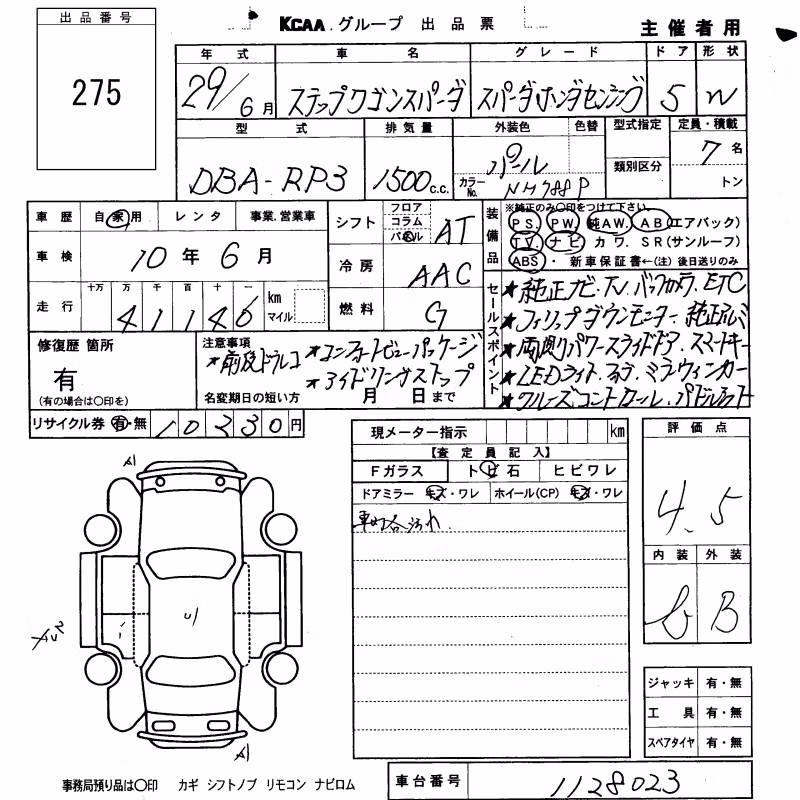 出品番号
275
KCAA.グループ 出品票
主催者用
年式 車名 グレード ドア 形状
29/6月 ステップワゴンスパーダ スパーダホンダセンシング 5 W
型式 排気量 外装色 色替 型式指定 定員・積載
DBA-RP3 1500c.c. パール カラーNo. NH788P 類別区分 7名
トン
車歴 自家用 レンタ 事業.営業車
車検 10年6月
走行 十万 万 千 百 十 一 km マイル
41146
シフト フロア コラム パネル AT
冷房 AAC
燃料 G
装備品 ※純正のみ〇印をつけて下さい。
PS. PW. 純AW. AB(エアバック)
TV. ナビ カワ. SR(サンルーフ)
ABS・新車保証書←(注)後日送りのみ
セールスポイント
★純正ナビ・TV.バックカメラ.ETC
★フィリップダウンモニター.純正アルミ
★両側パワースライドドア.スマートキー
★LEDライト.フォグ.ミラウィンカー
★クルーズコントロール.パドルシフト
修復歴 箇所
有
(有の場合は〇印を)
注意事項
★前後ドラレコ ★コンフォートビューパッケージ
★アイドリングストップ
名変期日の短い方 月 日まで
リサイクル券 有・無 10330円
現メーター指示 km
【査定員記入】
Fガラス トビ石 ヒビワレ
ドアミラー キズ・ワレ ホイール(CP) キズ・ワレ
車内各汚れ.
評価点
4.5
内装 外装
B
A1
A1
ジャッキ 有・無
工具 有・無
スペアタイヤ 有・無
事務局預り品は〇印 カギ シフトノブ リモコン ナビロム
車台番号 1128023